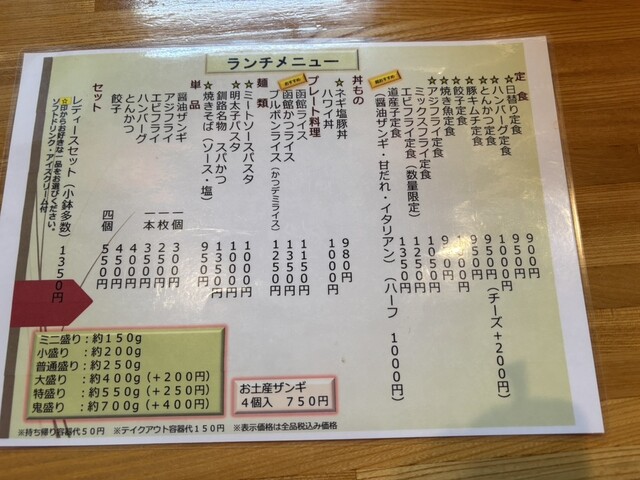 ランチメニュー
定食
☆日替り定食 900円
☆ハンバーグ定食 950円
☆とんかつ定食 1000円(チーズ+200円)
☆豚キムチ定食 950円
☆餃子定食
☆焼き魚定食
☆アジフライ定食 1050円
ミックスフライ定食 1250円
エビフライ定食(数量限定) 1350円
道産子定食
(醤油ザンギ・甘だれ・イタリアン)(ハーフ 1000円)
丼もの
☆ネギ塩豚丼 980円
ハワイ丼 1000円
プレート料理
函館ライス 1150円
函館かつライス 1350円
ブルボンライス(かつデミライス) 1250円
麺類
☆ミートソースパスタ 1000円
☆明太子パスタ 1000円
釧路名物 スパかつ 1350円
☆焼きそば(ソース・塩) 950円
単品
醤油ザンギ 一個 300円
アジフライ 一枚 250円
エビフライ 一本 350円
ハンバーグ 400円
とんかつ 450円
餃子 四個 550円
セット
レディースセット(小鉢多数) 1350円
☆印からお好きな一品をお選びください。
ソフトドリンク・アイスクリーム付
ミニ盛り:約150g
小盛り:約200g
普通盛り:約250g
大盛り:約400g(+200円)
特盛り:約550g(+250円)
鬼盛り:約700g(+400円)
お土産ザンギ
4個入 750円
※持ち帰り容器代50円 ※テイクアウト容器代150円 ※表示価格は全品税込み価格